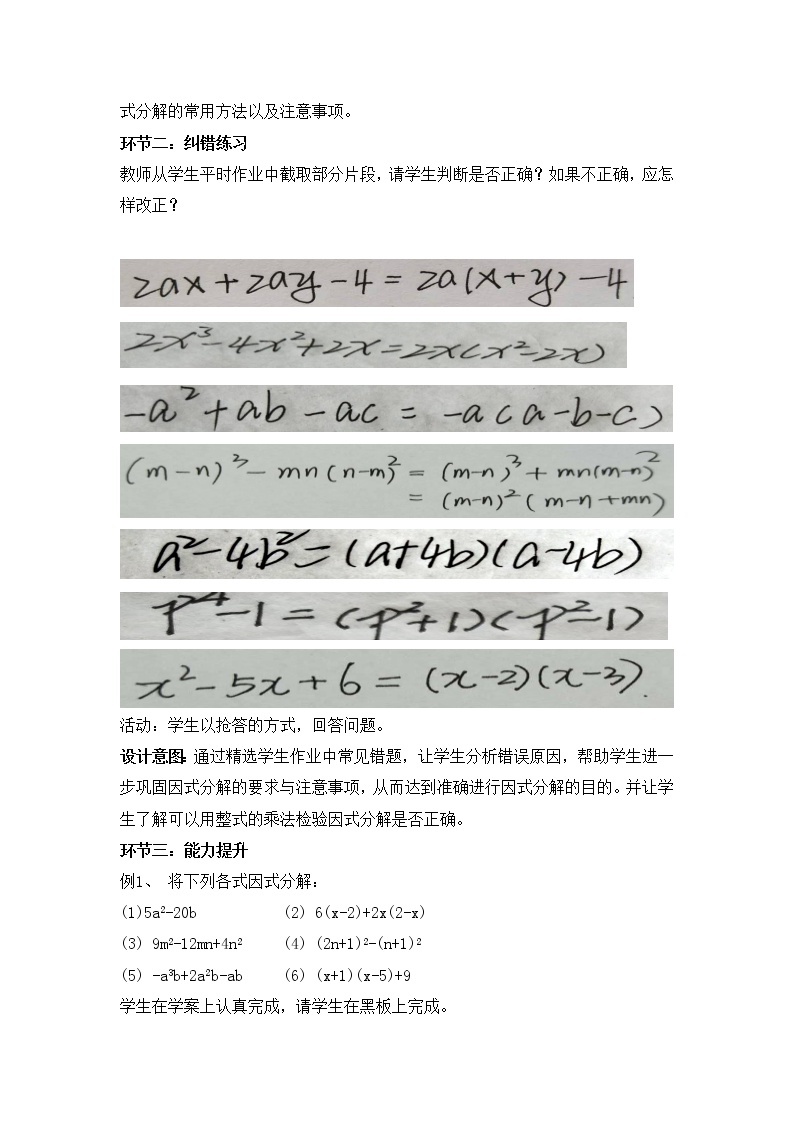 式分解的常用方法以及注意事项。
环节二：纠错练习
教师从学生平时作业中截取部分片段，请学生判断是否正确？如果不正确，应怎
样改正？
2ax+2ay-4=2a(x+y)-4
2x³-4x²+2x=2x(x²-2x)
-a²+ab-ac=-a(a-b-c)
(m-n)³-mn(n-m)²=(m-n)³+mn(m-n)²
=(m-n)²(m-n+mn)
a²-4b²=(a+4b)(a-4b)
p⁴-1=(p²+1)(p²-1)
x²-5x+6=(x-2)(x-3).
活动：学生以抢答的方式，回答问题。
设计意图：通过精选学生作业中常见错题，让学生分析错误原因，帮助学生进一
步巩固因式分解的要求与注意事项，从而达到准确进行因式分解的目的。并让学
生了解可以用整式的乘法检验因式分解是否正确。
环节三：能力提升
例1、 将下列各式因式分解：
(1)5a²-20b (2) 6(x-2)+2x(2-x)
(3) 9m²-12mn+4n² (4) (2n+1)²-(n+1)²
(5) -a³b+2a²b-ab (6) (x+1)(x-5)+9
学生在学案上认真完成，请学生在黑板上完成。